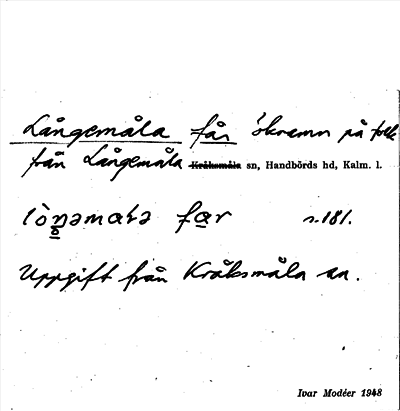 Långemåla får 'öknamn på folk
från Långemåla Kråksmåla sn, Handbörds hd, Kalm. l.
s. 181.
Uppgift från Kråksmåla sn.
Ivar Modéer 1948